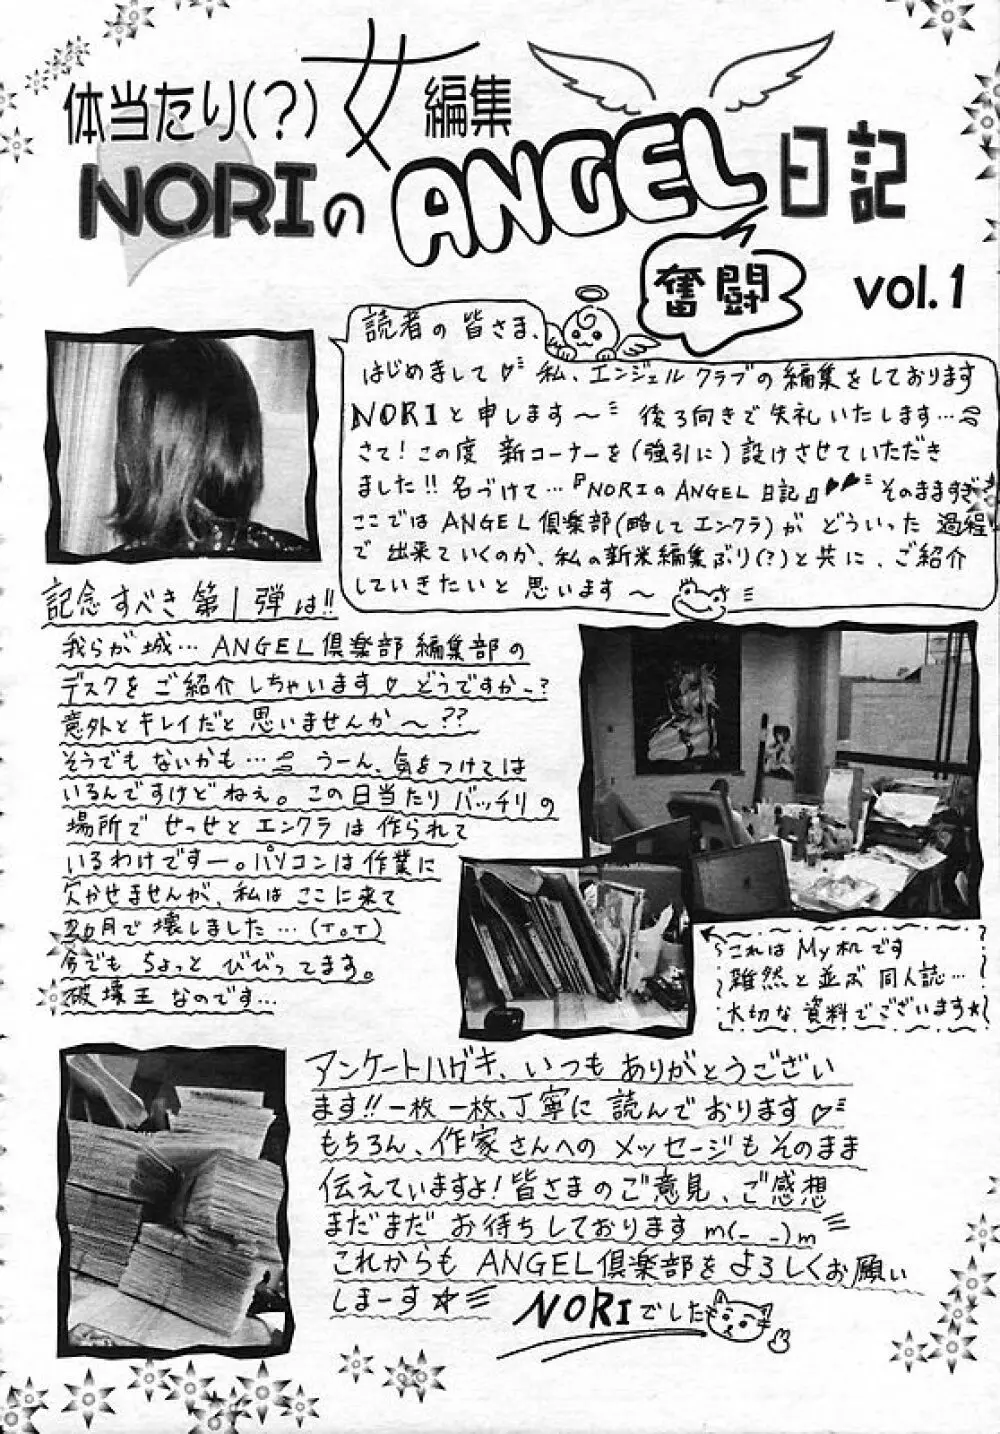 体当たり(?)女編集
NORIのANGEL日記
奮闘
vol.1
読者の皆さま、
はじめまして♡ 私、エンジェルクラブの編集をしております
NORIと申します〜 後ろ向きで失礼いたします…
さて!この度 新コーナーを(強引に)設けさせていただき
ました!! 名づけて…『NORIのANGEL日記』♥♥ そのまますぎ
ここでは ANGEL倶楽部(略してエンクラ)が どういった 過程
で 出来ていくのか、私の新米編集ぶり(?)と共に、ご紹介
していきたいと思います〜
記念すべき第1弾は!!
我らが城… ANGEL倶楽部編集部の
デスクをご紹介しちゃいます♡ どうですか〜?
意外とキレイだと思いませんか〜??
そうでもないかも… うーん、気をつけては
いるんですけどねぇ。この日当たりバッチリの
場所で せっせと エンクラは作られて
いるわけですー。パソコンは作業に
欠かせませんが、私はここに来て
2ヵ月で壊しました…(ToT)
今でも ちょっと びびってます。
破壊王なのです…
これは My机です
雑然と並ぶ同人誌…
大切な資料でございます☆
アンケートハガキ、いつもありがとうござい
ます!! 一枚一枚、丁寧に読んでおります♡
もちろん、作家さんへのメッセージもそのまま
伝えていますよ!皆さまのご意見、ご感想
まだまだお待ちしておりますm(_ _)m
これからもANGEL倶楽部をよろしくお願い
しまーす☆
NORIでした